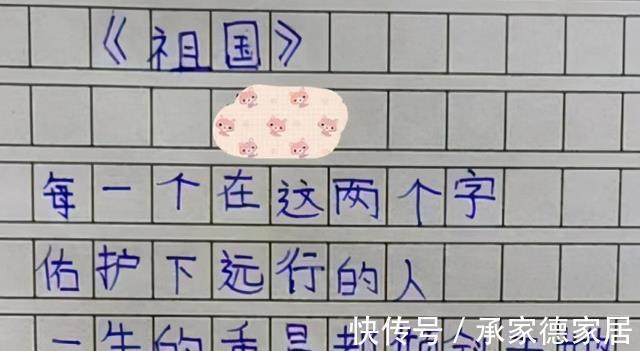 《祖国》
每一个在这两个字
佑护下远行的人
一生的重量都倾
快传号／承家德家居